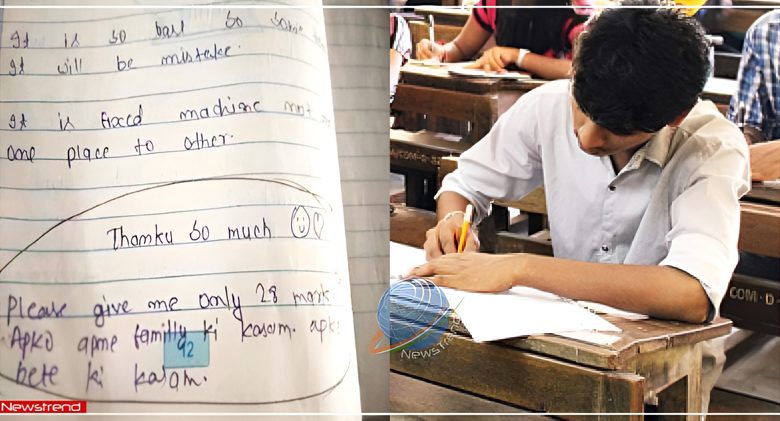 It is so bast so
It will be mistake.
It is fixed machine not
one place to other.
Thanku so much
Please give me only 28 mark
Apko apne familly ki kasam. apke
92
bete ki kasam.
Newstrend
Newstrend
COM·D